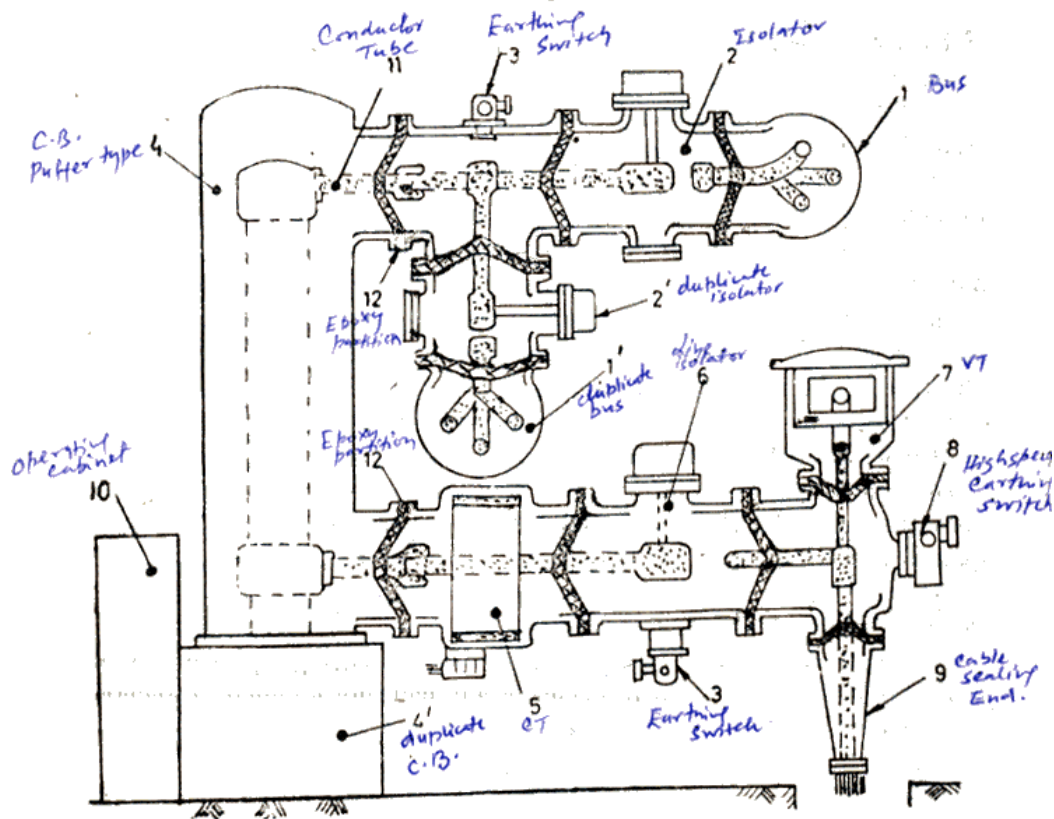 Conductor
Tube
11
Earthing
Switch
3
Isolator
2
1 Bus
C.B.
Puffer type 4
12
Epoxy
partition
2' duplicate
isolator
1'
duplicate
bus
isolator
6
7 VT
Epoxy
partition
12
Operating
cabinet
10
8
Highspeed
earthing
switch
5
CT
3
Earthing
switch
9 cable
sealing
End.
4'
duplicate
C.B.